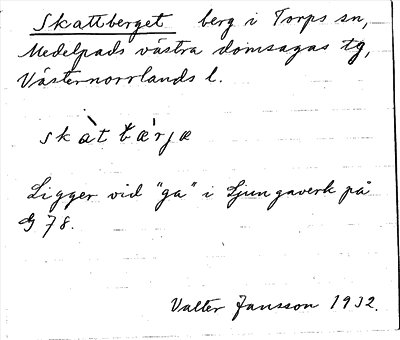 Skattberget berg i Torps sn,
Medelpads västra domsagas tg,
Västernorrlands l.
skàt bæ̀rjæ
Ligger vid "ga" i Ljungaverk på
G 78.
Valter Jansson 1932.